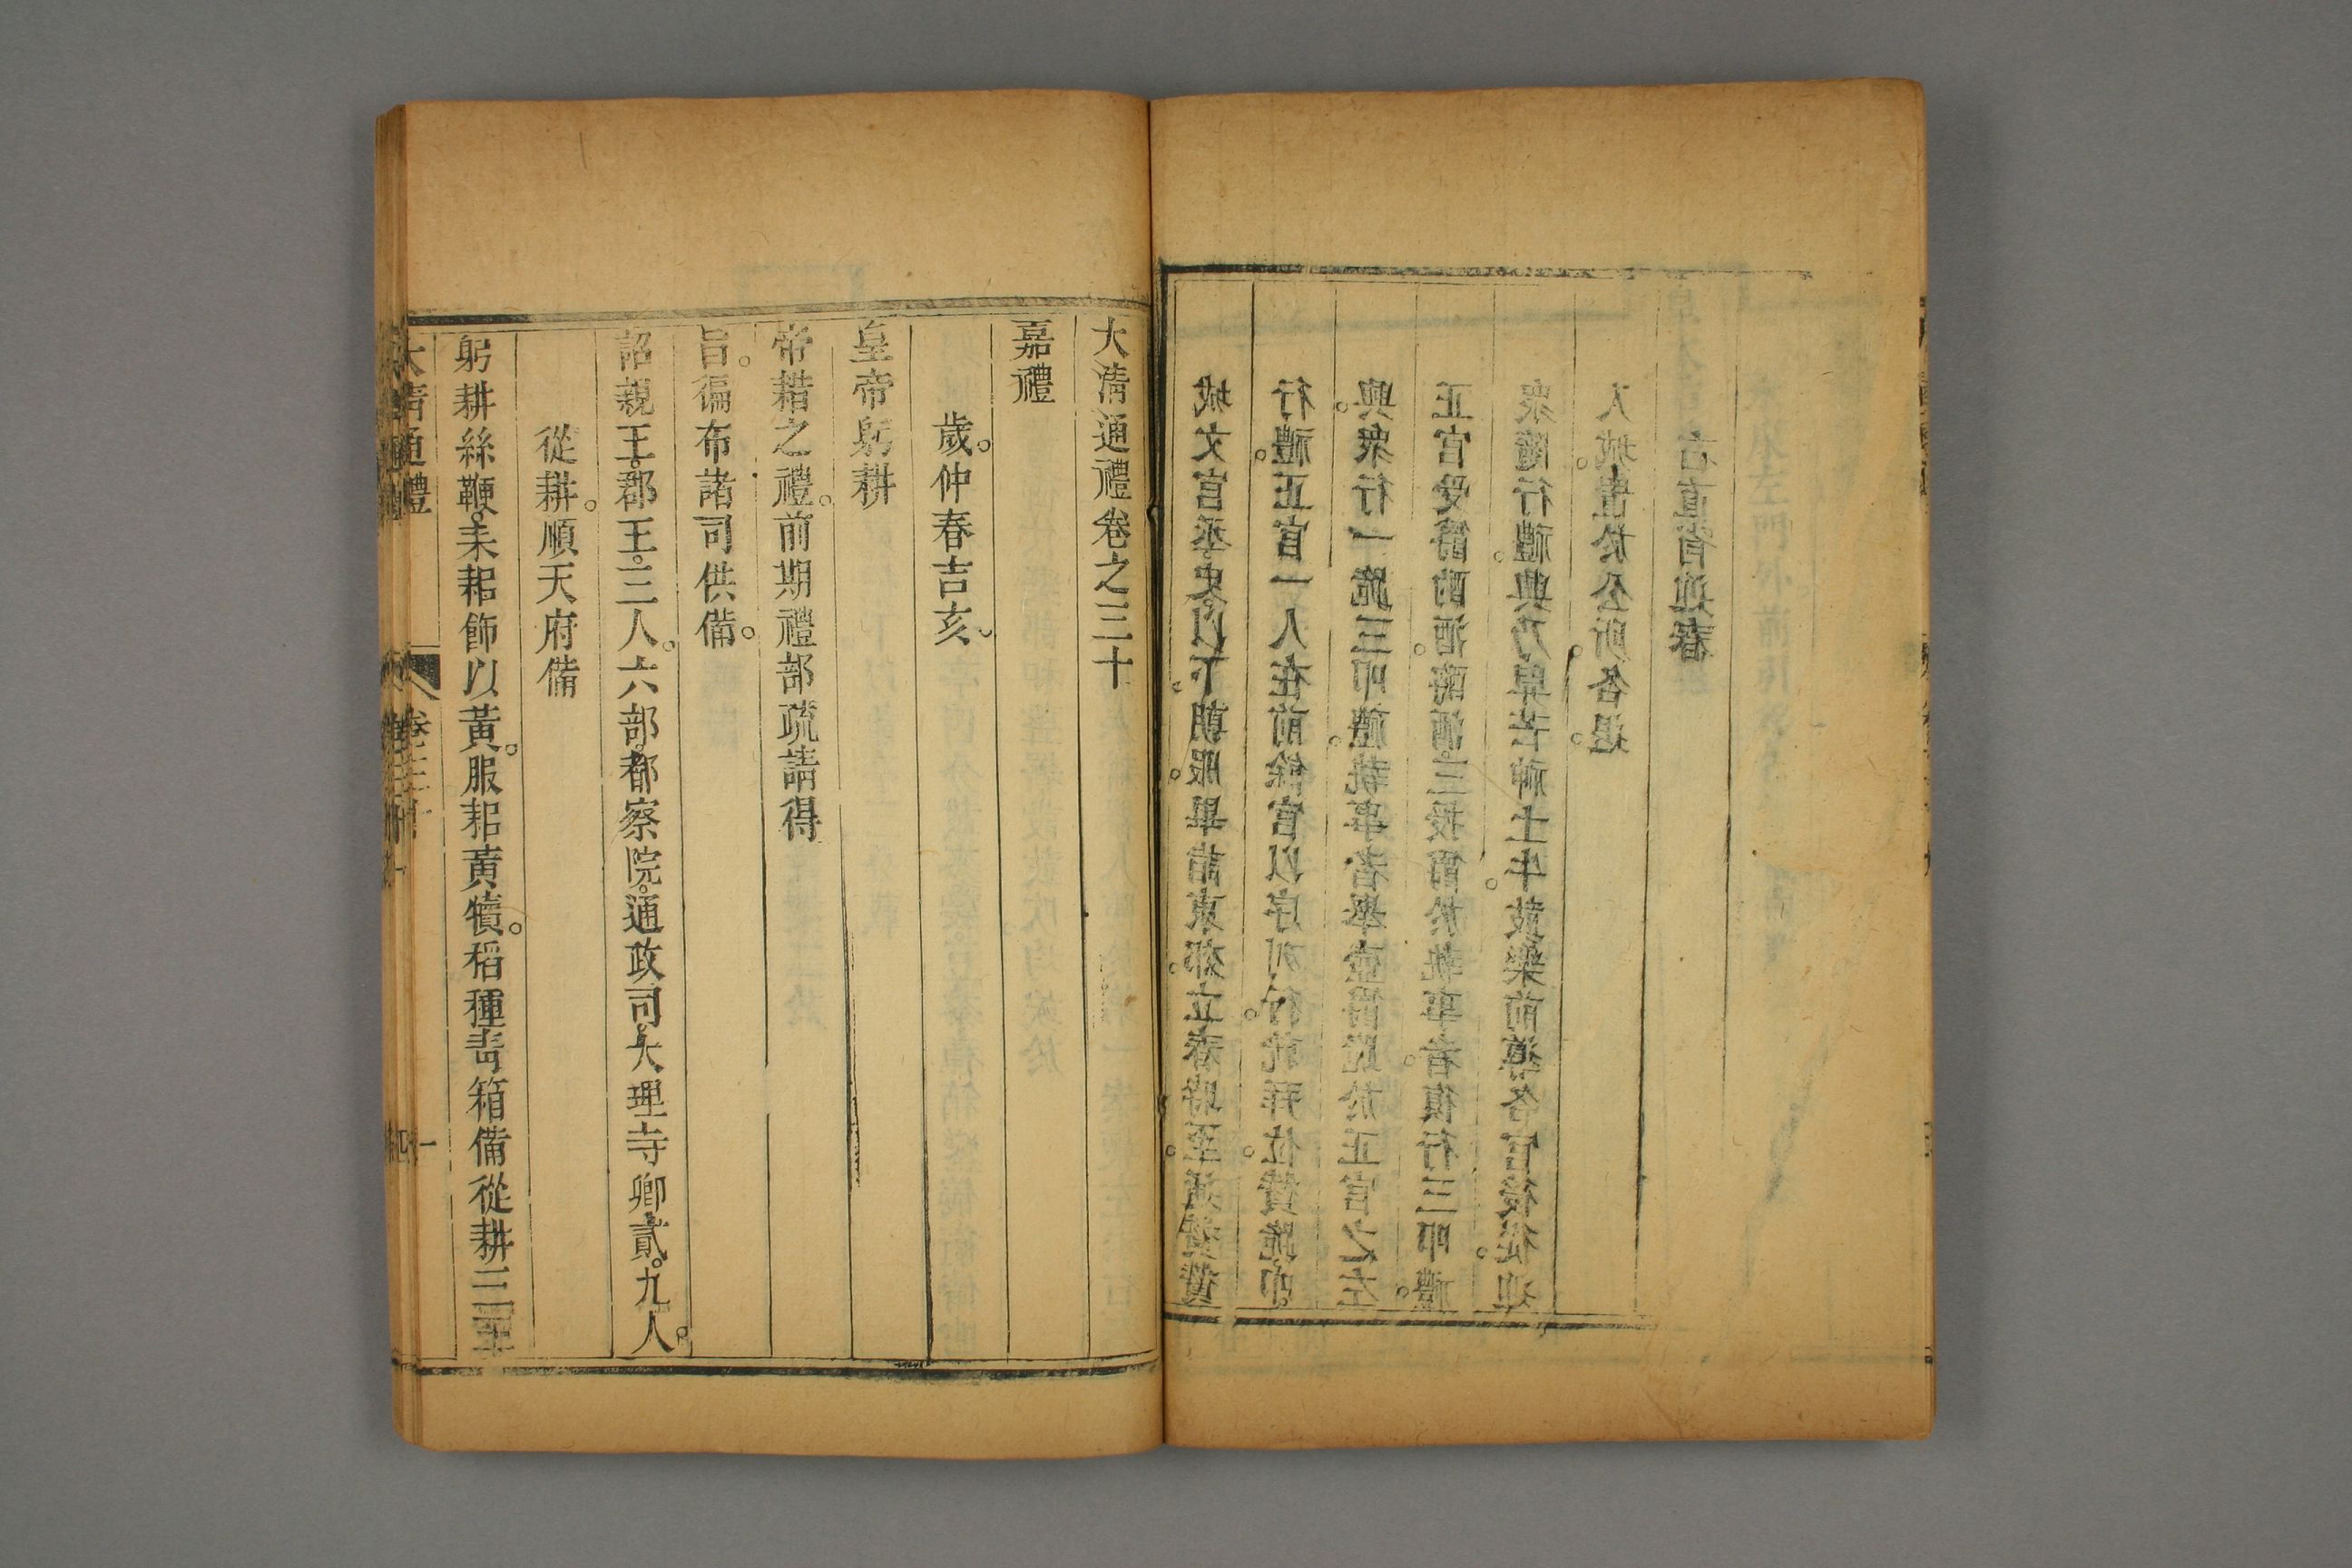 城文官丞史以下。朝服。畢詣東郊。立春時至。通贊贊
行禮。正官一人在前餘官以序列行。就拜位。贊跪叩
興。眾行一跪三叩禮。執事者舉壺爵跪於正官之左
正官受爵酌酒。酹酒。三授爵於執事者。復行三叩禮。
眾隨行禮。興乃舁芒神土牛。鼓樂前導各官後從。迎
入城。置於公所。各退。
右直省迎春
大清通禮卷之三十
嘉禮
歲。仲春吉亥。
皇帝躬耕
帝耤之禮。前期禮部疏請得
旨。徧布諸司供備。
詔親王。郡王。三人。六部。都察院。通政司。大理寺卿貳。九人。
從耕。順天府備
躬耕絲鞭。耒耜飾以黃。服耜黃犢。稻種青箱備從耕三王
大清通禮
卷三十
一